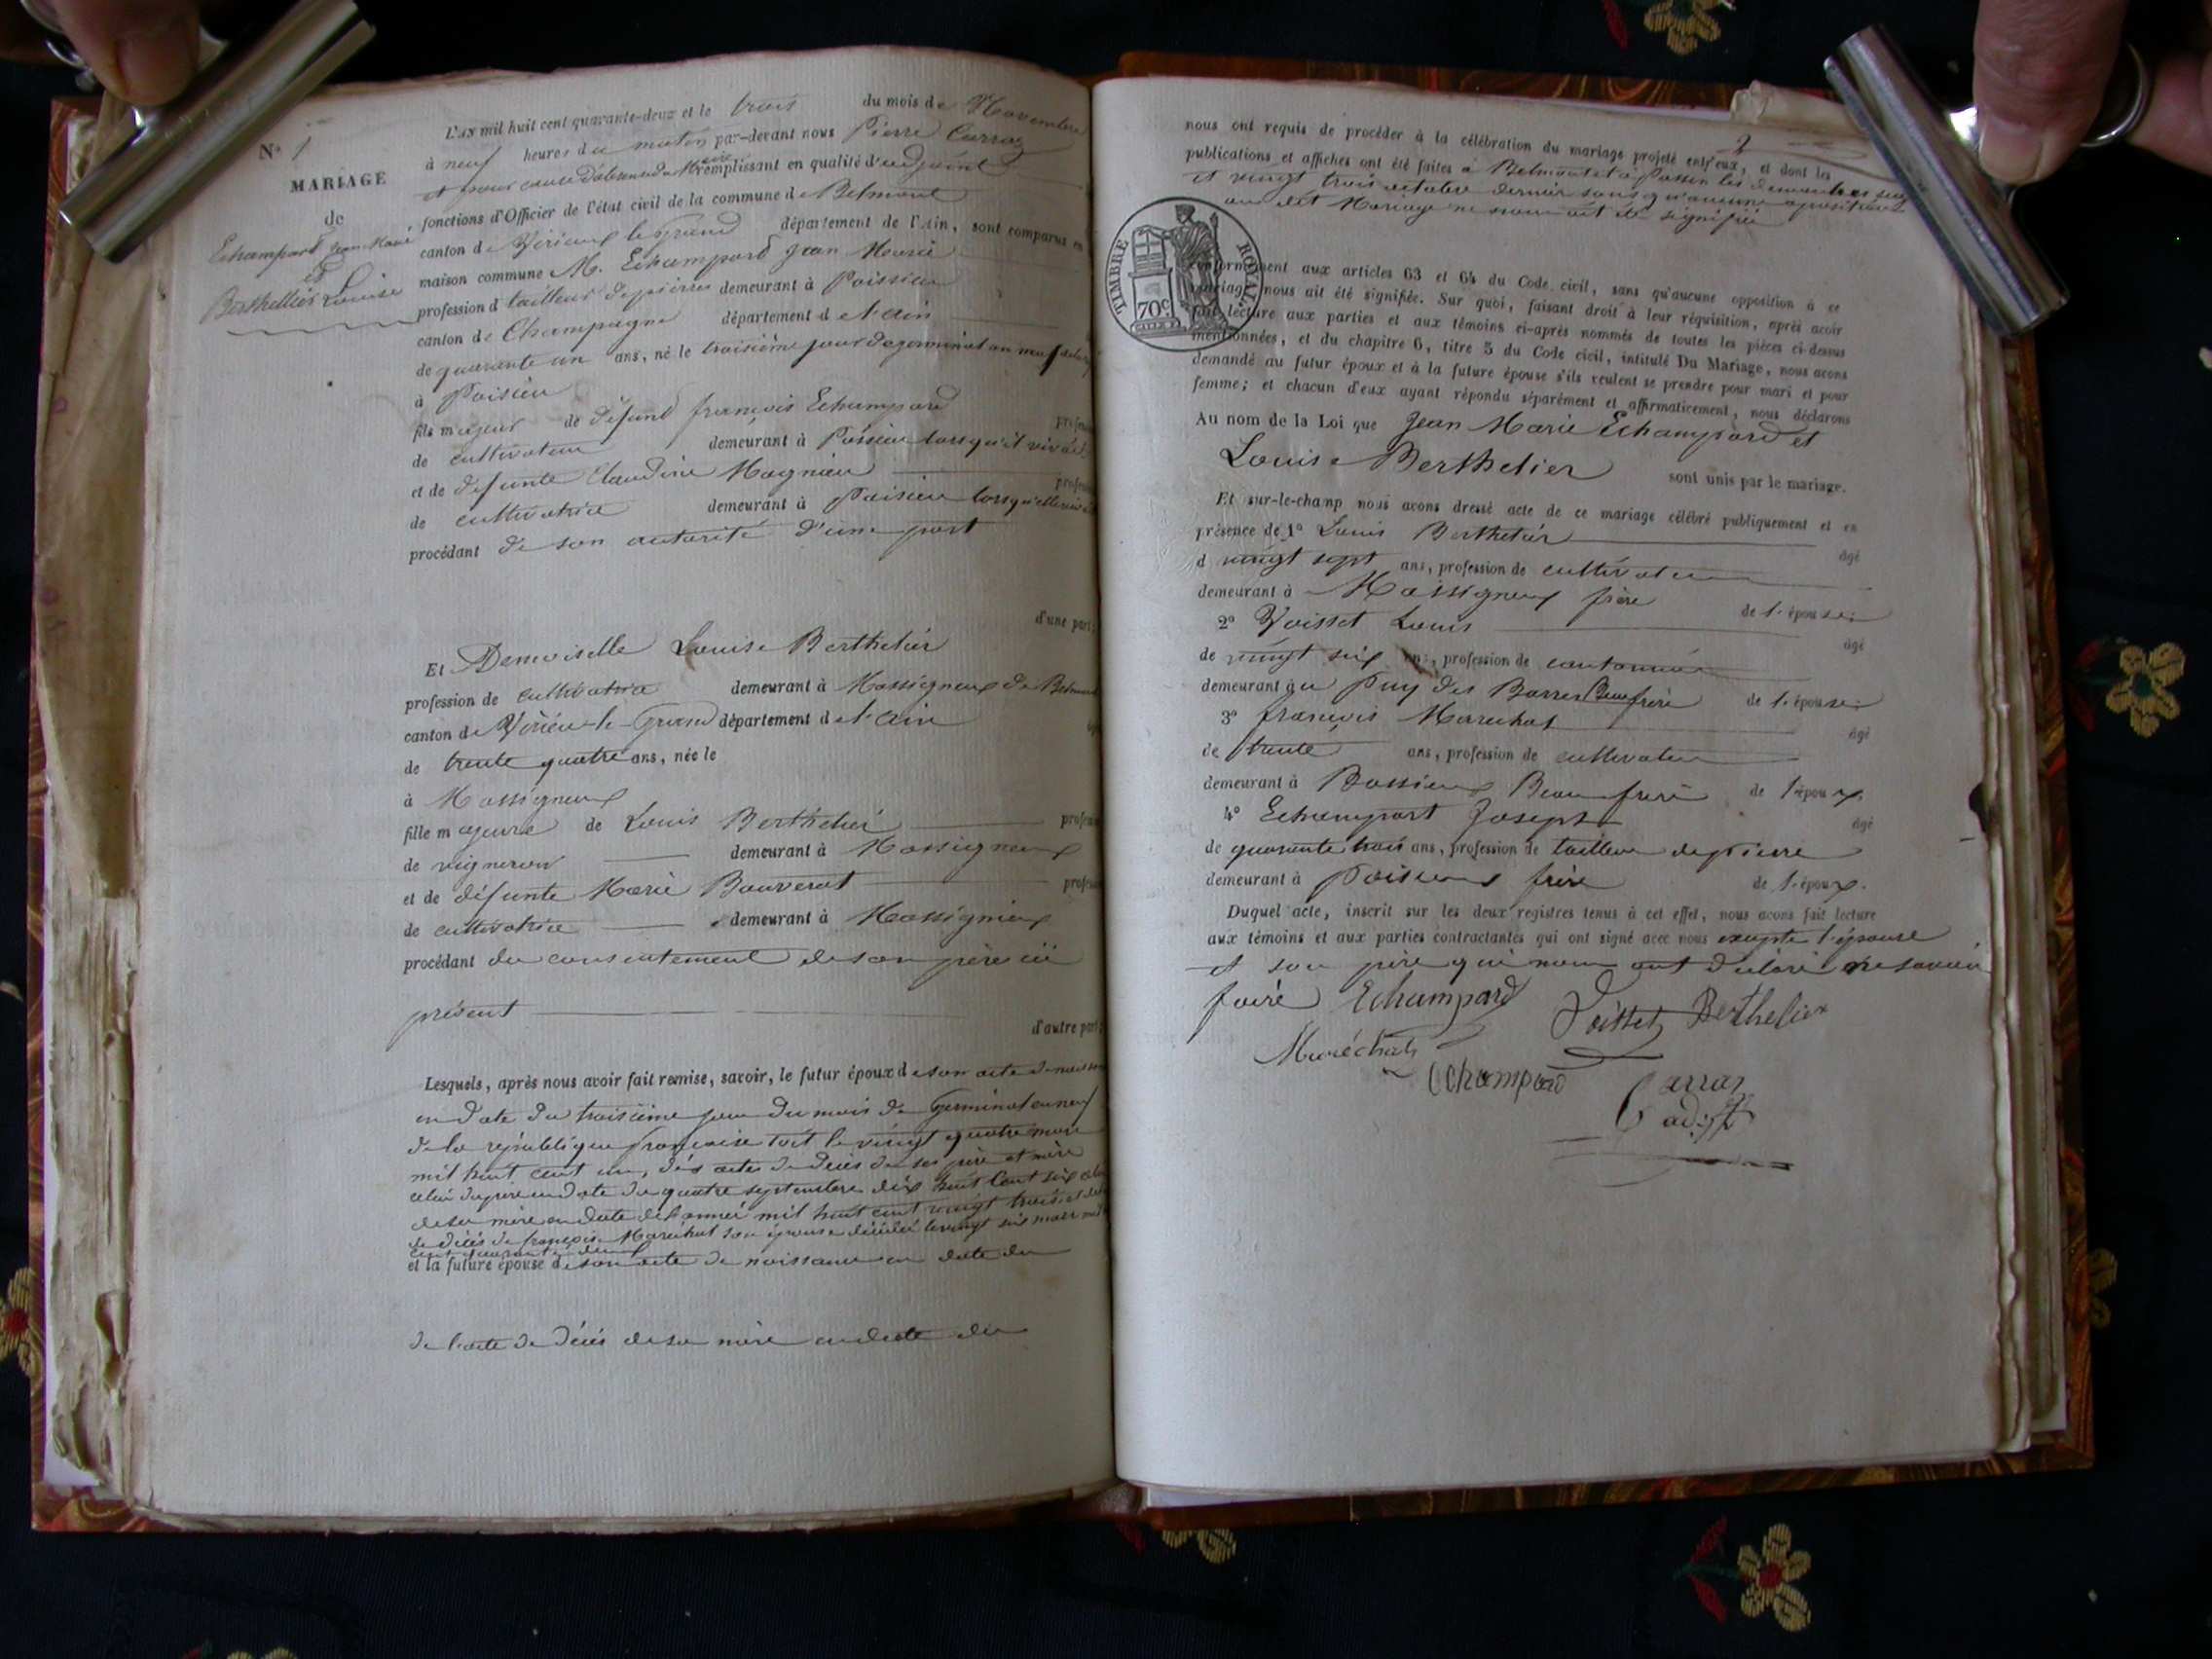 N° 1
MARIAGE
de
Echampard Jean Marie
et
Berthellier Louise
L'AN mil huit cent quarante-deux et le trois du mois de Novembre
à neuf heures du matin par-devant nous Pierre Carraz
et pour cause d'absence du Maire remplissant en qualité d'adjoint
fonctions d'Officier de l'état civil de la commune de Belmont
canton de Virieux le grand département de l'Ain, sont comparus en
maison commune M. Echampard Jean Marie
profession d tailleur de pierres demeurant à Poissieu
canton de Champagne département de l'ain
de quarante un ans, né le troisième jour de germinal an neuf
à Poisieu
fils majeur de défunt françois Echampard
de cultivateur demeurant à Poisieu lorsqu'il vivait
et de defunte Claudine Magnieu
de cultivatrice demeurant à Poisieu lorsqu'elle vivait
procédant de son autorité d'une part
d'une part;
Et Demoiselle Louise Berthelier
profession de cultivatrice demeurant à Massigneux de Belmont
canton de Virieu-le-Grand département de l'ain
de trente quatre ans, née le
à Massigneux
fille majeure de Louis Berthelier
de vigneron demeurant à Massigneux
et de défunte Marie Bauverat
de cultivatrice demeurant à Massignieux
procédant du consentement de son père ici
présent
d'autre part;
Lesquels, après nous avoir fait remise, savoir, le futur époux de son acte de naissance
en date du troisième jour du mois de Germinal an neuf
de la république française soit le vingt quatre mars
mil huit cent un, des actes de décès de ses père et mère
celui du père en date du quatre septembre dix huit cent six celui
de sa mère en date de l'année mil huit cent vingt trois et
de décès de françoise Maréchal son épouse décédée le vingt six mars mil
cent quarante deux
et la future épouse de son acte de naissance en date du
de l'acte de décès de sa mère en date du
2
nous ont requis de procéder à la célébration du mariage projeté entr'eux, et dont les
publications et affiches ont été faites à Belmont et à Possin les dimanches seize
et vingt trois octobre dernier sans qu'aucune opposition
au dit Mariage ne nous ait été signifiée
TIMBRE ROYAL
70c
conformément aux articles 63 et 64 du Code civil, sans qu'aucune opposition à ce
mariage nous ait été signifiée. Sur quoi, faisant droit à leur réquisition, après avoir
fait lecture aux parties et aux témoins ci-après nommés de toutes les pièces ci-dessus
mentionnées, et du chapitre 6, titre 5 du Code civil, intitulé Du Mariage, nous avons
demandé au futur époux et à la future épouse s'ils veulent se prendre pour mari et pour
femme; et chacun d'eux ayant répondu séparément et affirmativement, nous déclarons
Au nom de la Loi que Jean Marie Echampard et
Louise Berthelier sont unis par le mariage.
Et sur-le-champ nous avons dressé acte de ce mariage célébré publiquement et en
présence de 1° Louis Berthelier âgé
d vingt sept ans, profession de cultivateur
demeurant à Massigneux frère de l'épouse;
2° Voisset Louis âgé
de vingt six ans, profession de cantonnier
demeurant au Puy des Barres Beaufrère de l'épouse;
3° françois Marechal âgé
de trente ans, profession de cultivateur
demeurant à Bossieux Beaufrère de l'époux
4° Echampart Joseph âgé
de quarante trois ans, profession de tailleur de pierre
demeurant à Poissieux frère de l'époux.
Duquel acte, inscrit sur les deux registres tenus à cet effet, nous avons fait lecture
aux témoins et aux parties contractantes qui ont signé avec nous excepté l'épouse
et son père qui nous ont déclaré ne savoir
faire Echampard Voisset Berthelier
Maréchal
Echampard Carraz
adjt